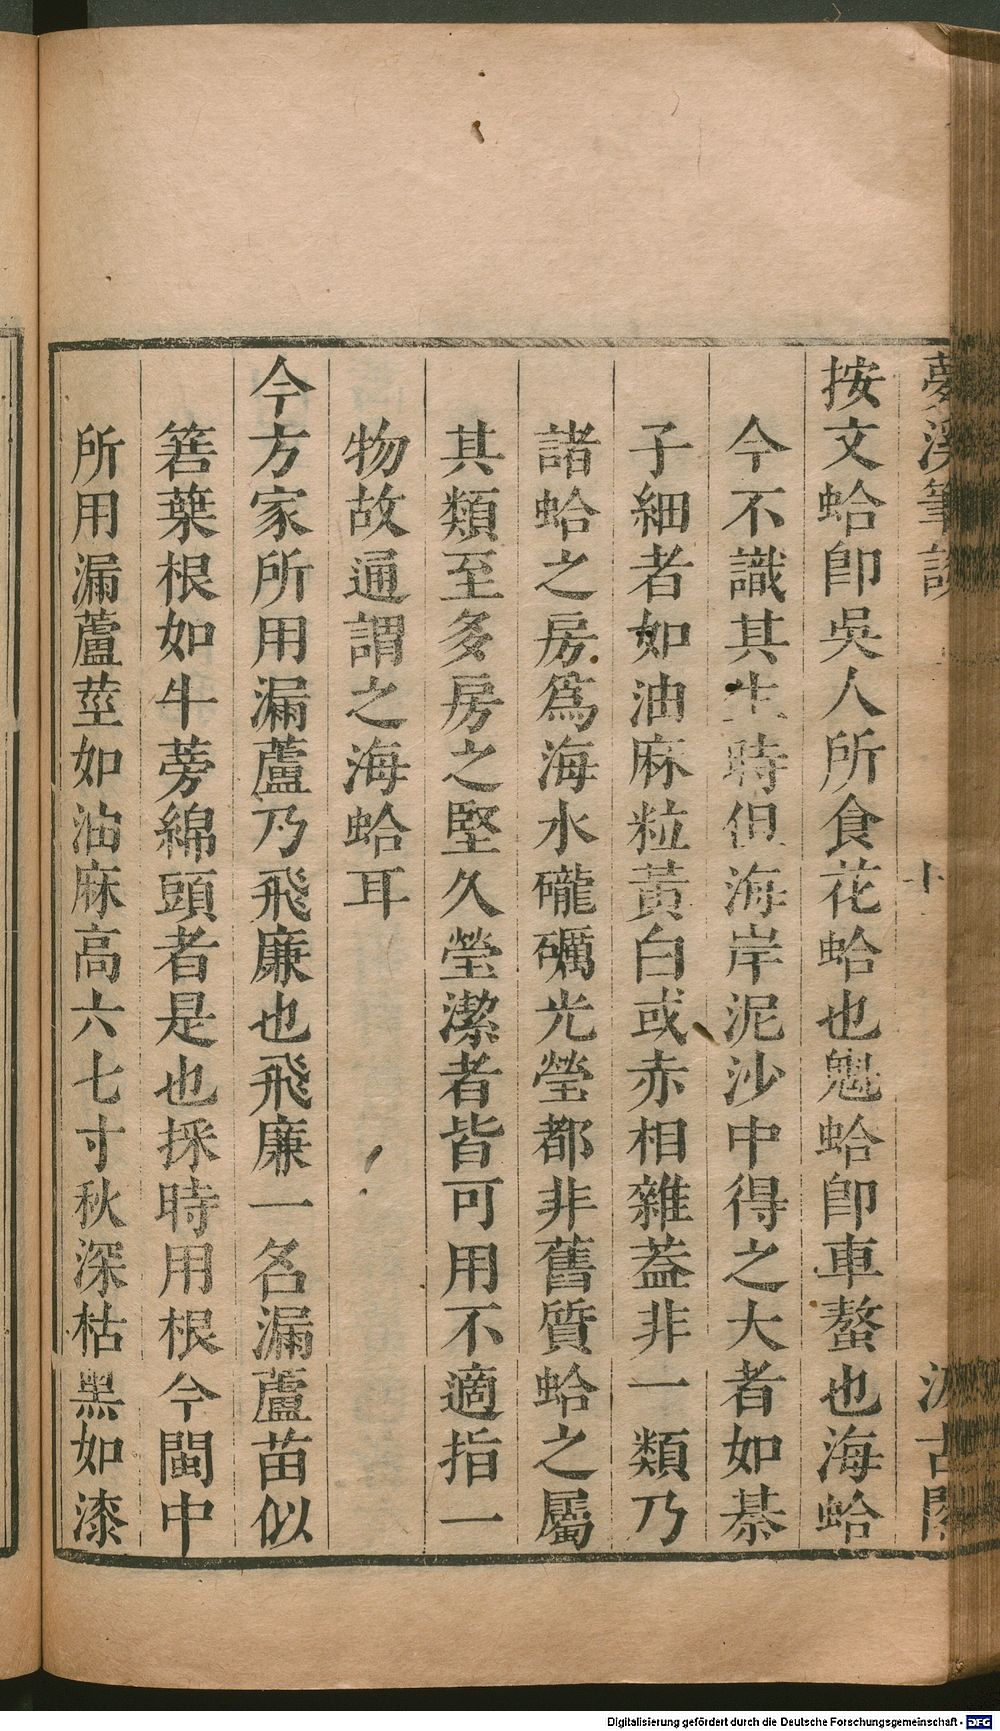 夢溪筆談
汲古閣
按文蛤卽吳人所食花蛤也魁蛤卽車螯也海蛤
今不識其生時但海岸泥沙中得之大者如棊
子細者如油麻粒黃白或赤相雜蓋非一類乃
諸蛤之房爲海水礲礪光瑩都非舊質蛤之屬
其類至多房之堅久瑩潔者皆可用不適指一
物故通謂之海蛤耳
今方家所用漏蘆乃飛廉也飛廉一名漏蘆苗似
箬葉根如牛蒡綿頭者是也採時用根今閩中
所用漏蘆莖如油麻高六七寸秋深枯黑如漆
Digitalisierung gefördert durch die Deutsche Forschungsgemeinschaft - DFG